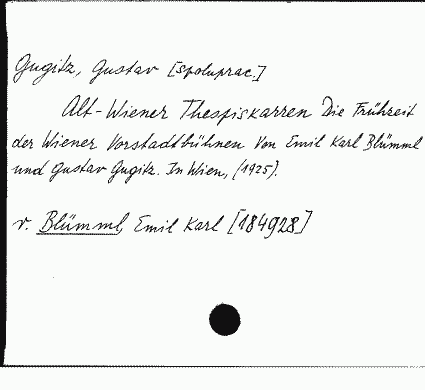 Gugitz, Gustav [spoluprac.]
Alt-Wiener Thespiskarren Die Frühzeit
der Wiener Vorstadtbühnen Von Emil Karl Blümml
und Gustav Gugitz. In Wien, (1925).
v. Blümml, Emil Karl [184928]